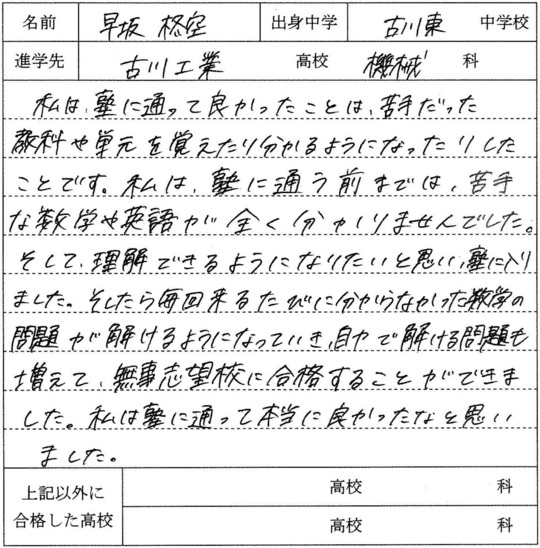 名前 早坂 柊空 出身中学 古川東 中学校
進学先 古川工業 高校 機械 科
私は、塾に通って良かったことは、苦手だった
教科や単元を覚えたり分かるようになったりした
ことです。私は、塾に通う前までは、苦手
な数学や英語が全く分かりませんでした。
そして、理解できるようになりたいと思い、塾に入り
ました。そしたら毎回来るたびに分からなかった数学の
問題が解けるようになっていき、自力で解ける問題も
増えて、無事志望校に合格することができま
した。私は塾に通って本当に良かったなと思い
ました。
上記以外に
合格した高校
高校 科
高校 科